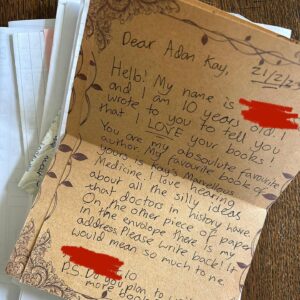 Dear Adan Kay,
21/2/23
Hello! My name is
and I am 10 years old. I
wrote to you to tell you
that I LOVE your books!
You are my absoulute favourite
author. My favourite book of
yours is Kay's Marvellous
Medicine. I love hearing
about all the silly ideas
that doctors in history have.
On the other piece of paper
in the envelope there is my
address. Please write back! It
would mean so much to me.
10
P.S. Do you plan to
more book